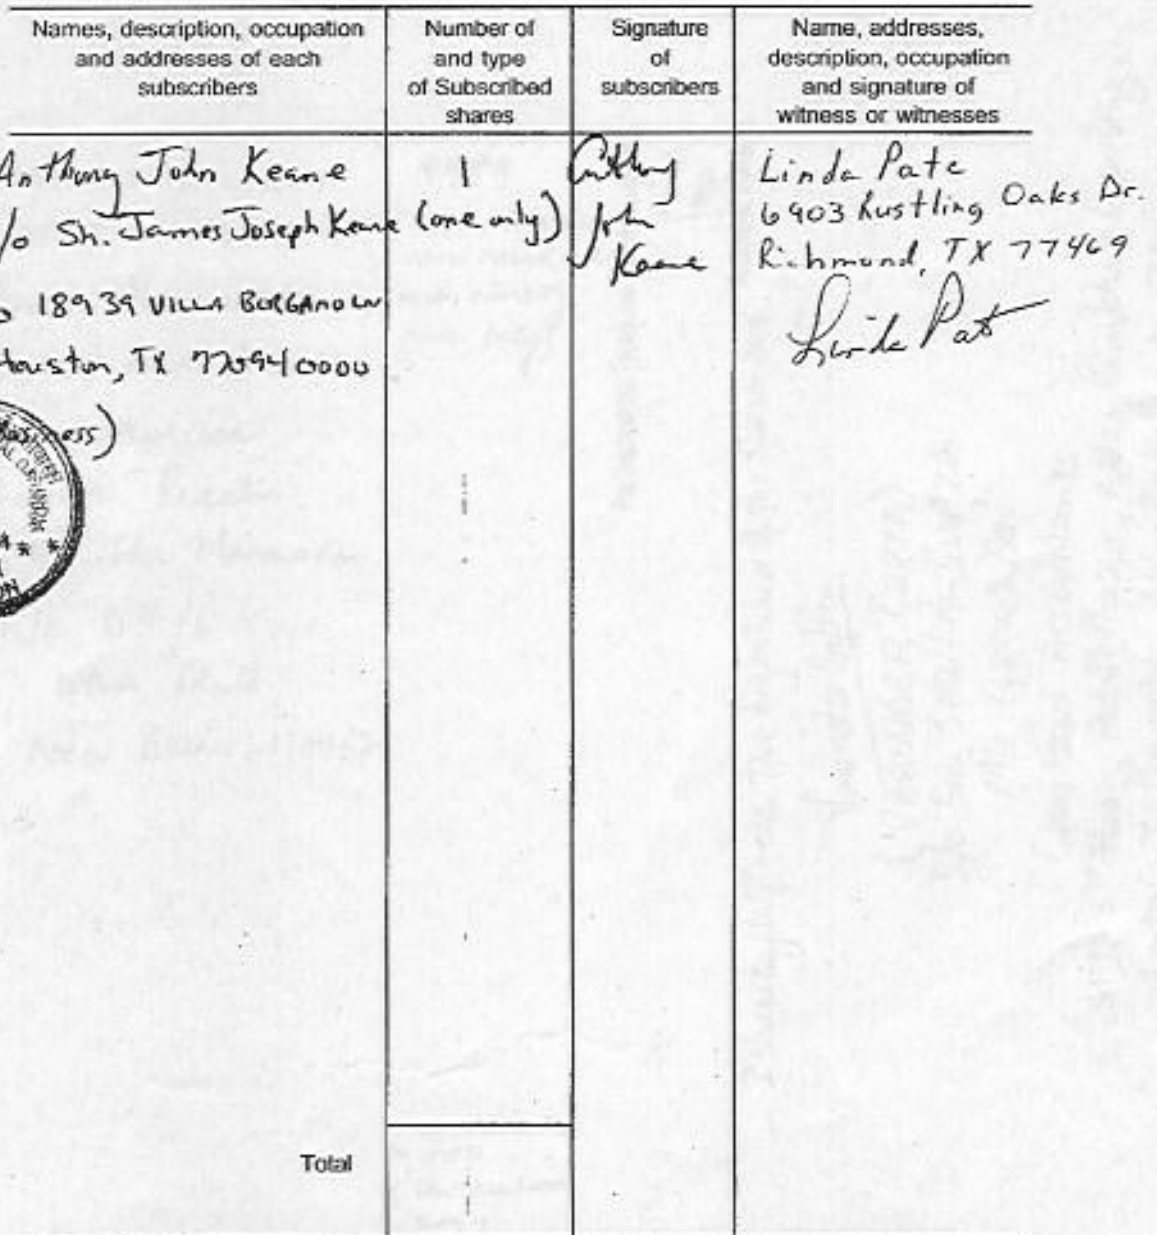 Names, description, occupation
and addresses of each
subscribers
Number of
and type
of Subscribed
shares
Signature
of
subscribers
Name, addresses,
description, occupation
and signature of
witness or witnesses
Anthony John Keane
/o Sh. James Joseph Keane
18939 VILLA
Houston, TX
1
(one only)
Anthony
John
Keane
Linda Pate
6903 Rustling Oaks Dr.
Richmond, TX 77469
Linda Pate
Total